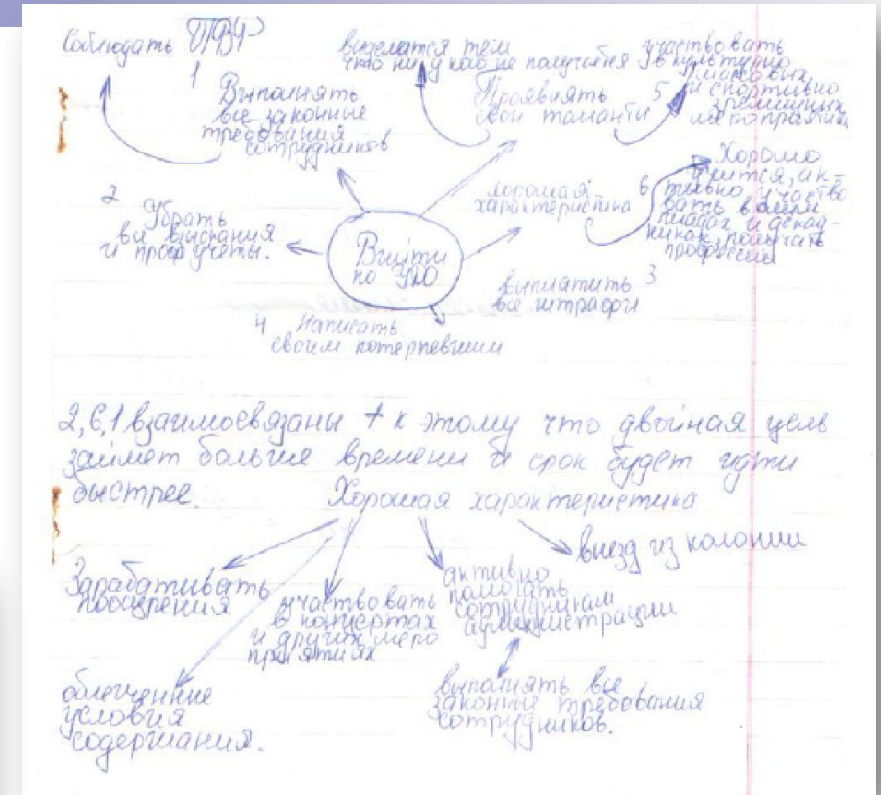 Соблюдать ПВР
1
Выполнять
все законные
требования
сотрудников
выделятся тем
что ни у кого не получается
Проявлять
свои таланти
5
участвовать
в культурно
массовых
и спортивно
мероприятия
2
Убрать
вы выскания
и проф учёты.
Выйти
по УДО
хорошая
характеристика
6
Хорошо
учится, ак-
тивно участво
вать в олим
пиадах и декад-
никах, получать
профессии
выплатить
все штрафы
3
4 Написать
своим потерпевшим
2,6,1 взаимосвязаны + к этому что двойная цель
займет больше времени и срок будет идти
быстрее.
Хорошая характеристика
Зарабатывать
поощрения
участвовать
в концертах
и других меро
приятиях
активно
помогать
сотрудникам
администрации
выезд из колонии
облегченние
условия
содержания.
выполнять все
законные требования
сотрудников.